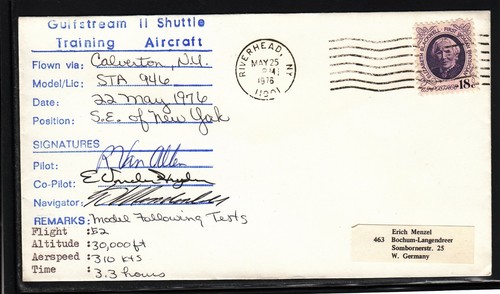 Gulfstream II Shuttle
Training Aircraft
Flown via: Calverton, N.Y.
Model/Lic: STA 946
Date: 22 May 1976
Position: S.E. of New York
SIGNATURES
Pilot: R Van Allen
Co-Pilot:
Navigator:
REMARKS: Model Following Tests
Flight :52
Altitude :30,000 ft
Aerspeed :310 kts
Time : 3.3 hours
RIVERHEAD, NY
MAY 25
PM
1976
11901
18c
Erich Menzel
463 Bochum-Langendreer
Sombornerstr. 25
W. Germany